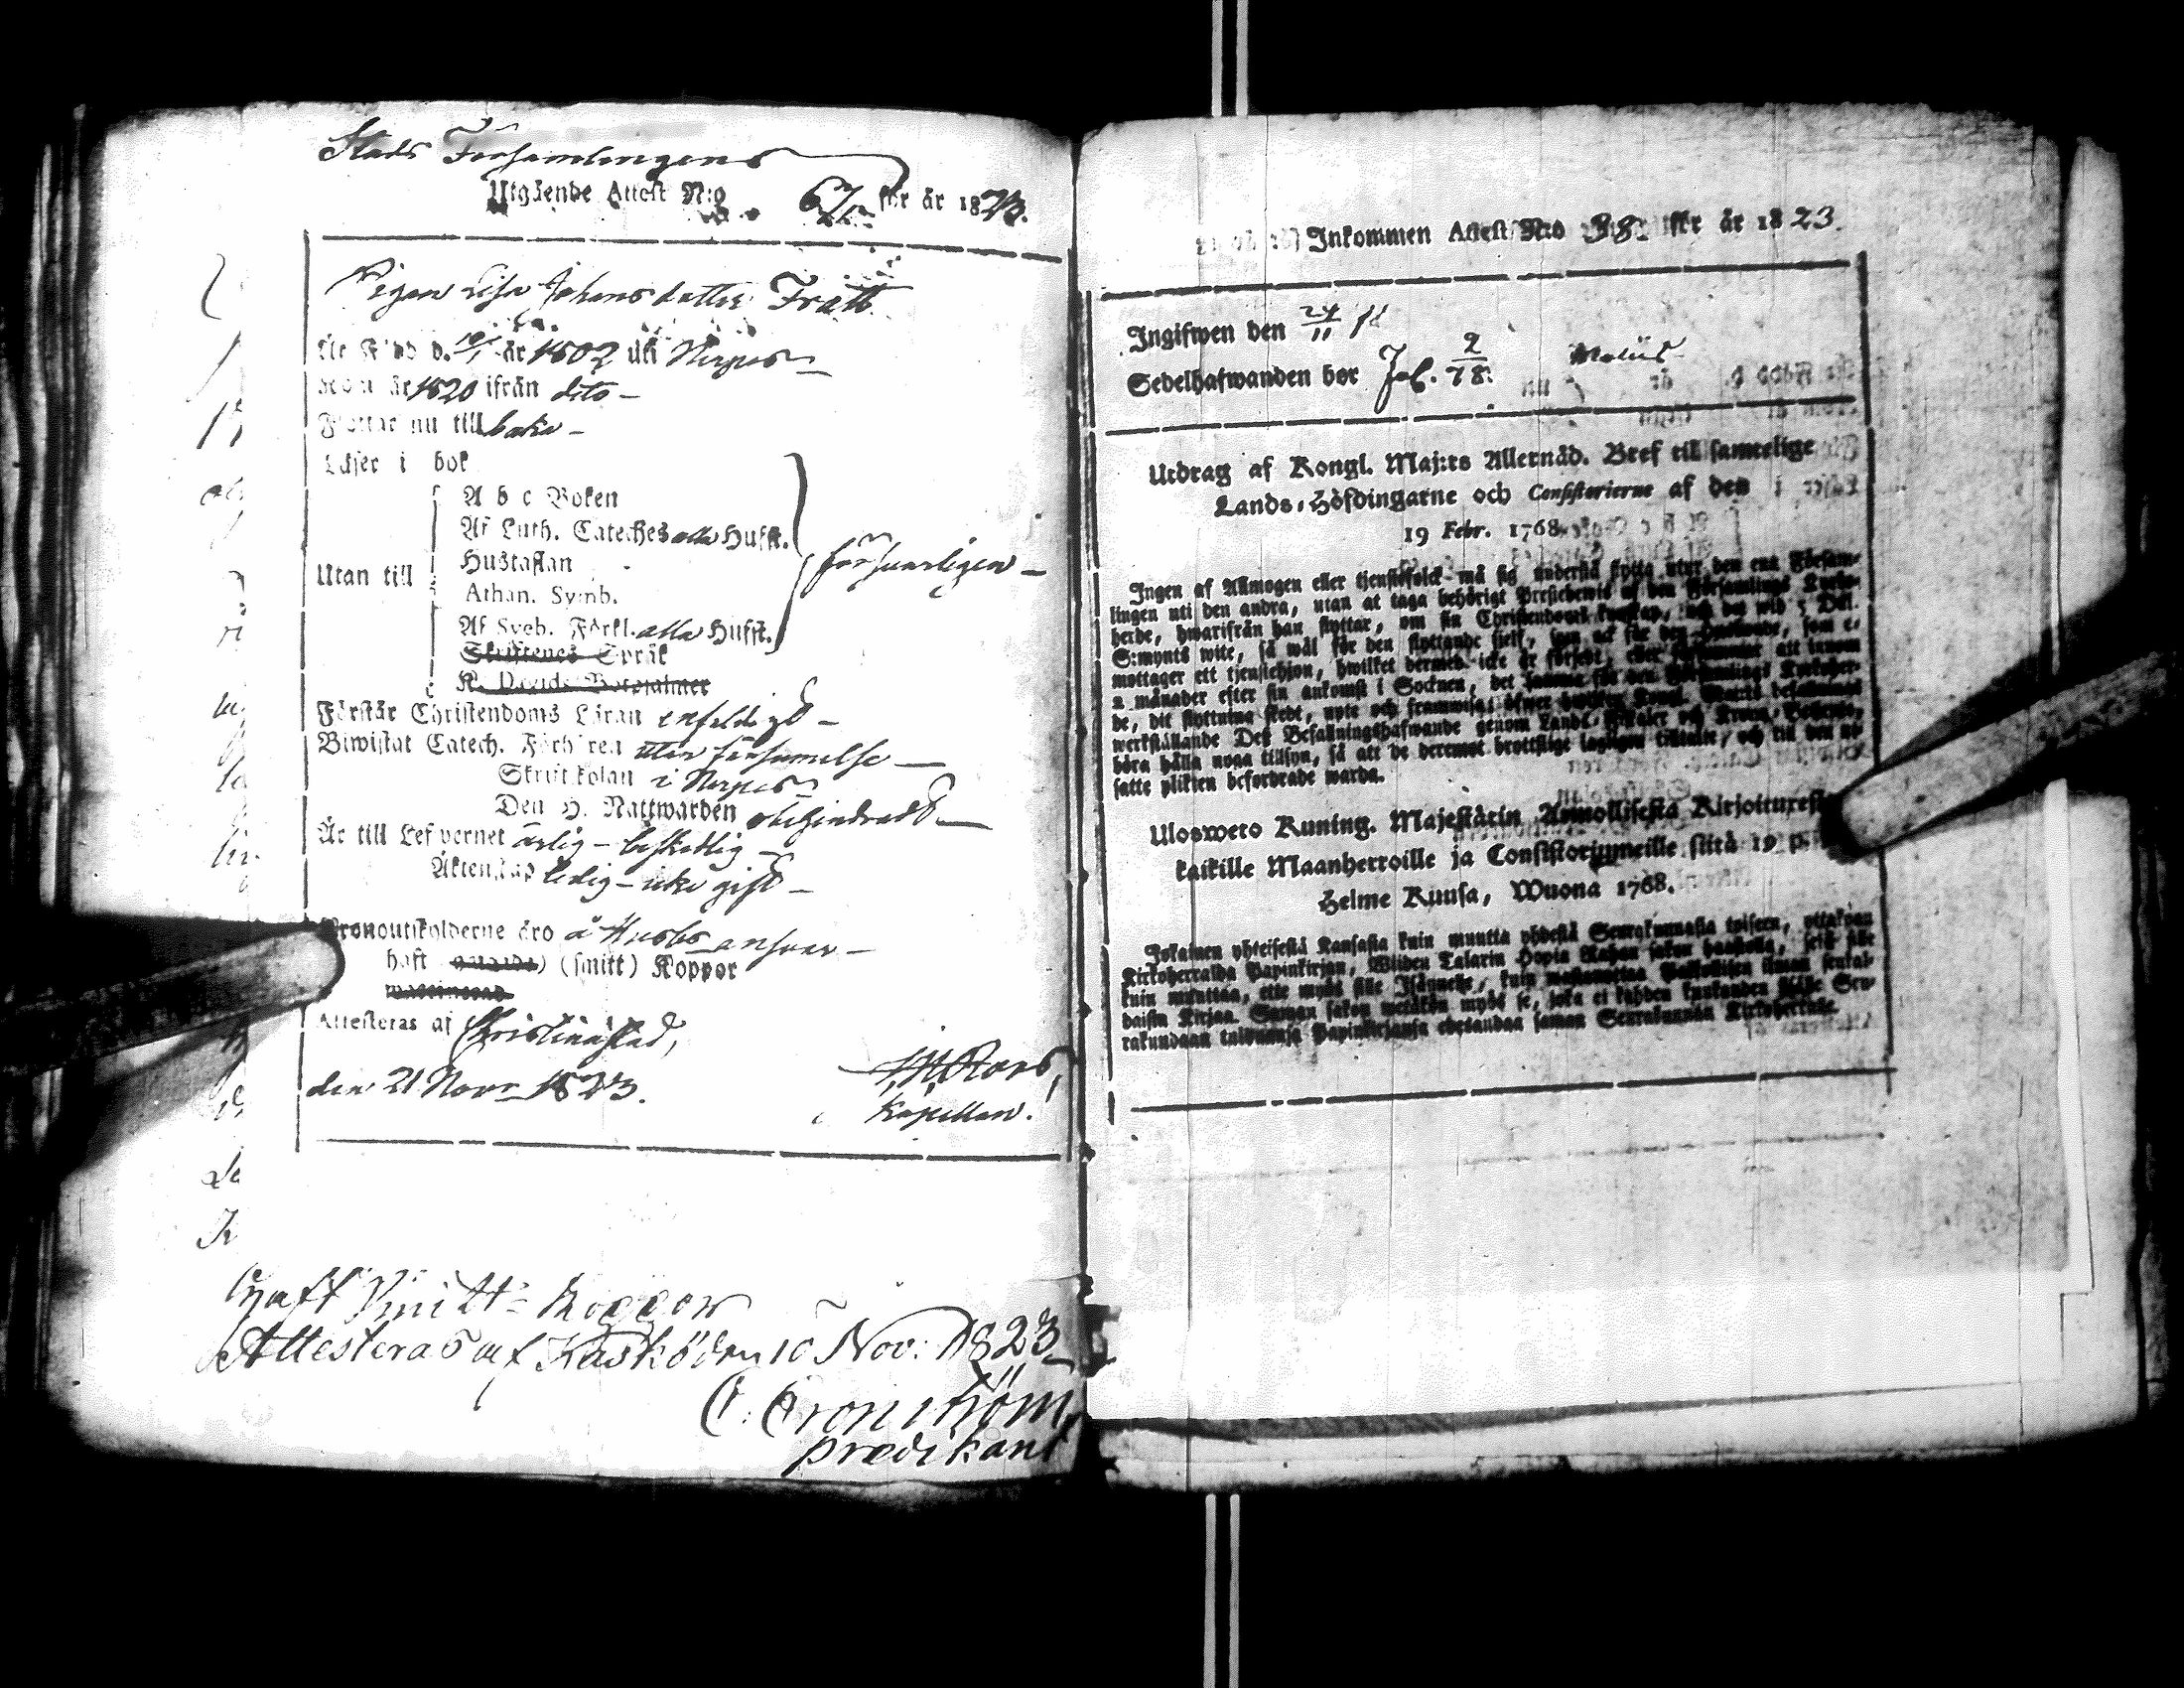 Stads Församlingens
Utgående Attest N:o 67 för år 1823.
Pigan Lisa Johansdotter Frätt
är född d. 10/1 år 1802 uti Nerpes
kom år 1820 ifrån dito
Flyttar nu tillbaka
Läser i bok
A b c Boken
Af Luth. Cateches alla Hufst.
Hustaflan
Utan till
Athan. Symb.
försvarligen
Af Sveb. Förkl. alla Hufst.
Skriftenes Språk
K. Davids Botpsalmer
Förstår Christendoms Läran enfeldigt
Biwistat Catech. Förhören utan försummelse
Skriftskolan i Nerpes
Den H. Nattwarden obehindradt
Är till Lefvernet ärlig - beskedlig
Äktenskap ledig - icke gift
Kronoutskylderne äro å Husbs ansvar
haft (smitt) Koppor
Attesteras af Christinæstad,
den 21 Novr 1823.
Kapellan.
haft Smitt Koppor
Attesteras af Kaskö den 10 Nov: 1823
C. Cronström
predikant
Inkommen Attest N:o 38. för år 1823.
Ingifwen den 24/11
Sedelhafwanden bor
Utdrag af Kongl. Maj:ts Allernåd. Bref till samtelige
Lands-Höfdingarne och Consistorierne af den
19 Febr. 1768.
Ingen af Allmogen eller tjenstefolck må sig understå flytta utur den ena Försam-
lingen uti den andra, utan at taga behörigt Prestebewis af den Församlings Kyrko-
herde, hwarifrån han flyttar, om sin Christendoms kunskap, och det wid 5 Dal.
S:mynts wite, så wäl för den flyttande sjelf, som ock för den Husbonde, som e-
mottager ett tjenstehjon, hwilket dermed icke är försedt, eller att innom
2 månader efter sin ankomst i Socknen, det samma för den Församlings Kyrkoher-
de, dit flyttning skedt, upte och framwisa;
werkställande Deß Befallningshafwande genom Lands-Fiskaler och Krono-Betjente,
böra hålla noga tillsyn, så att de deremot brottslige lagligen tilltalte, och till den ut-
satte plikten befordrade warda.
Ulosweto Kuning. Majestätin Armollisesta Kirjoituxesta
kaikille Maanherroille ja Consistoriumeille siitä 19 p.
Helme Kuusa, Wuona 1768.
Jokainen yhteisestä Kansasta kuin muutta yhdestä Seurakunnasta toiseen, ottakoon
Kirkoherralda Papinkirjan, Wiiden Talarin Hopia Rahan sakon haastolla, seka sille
kuin muuttaa, ette myös sille Isännelle, kuin wastanottaa Palkollisen ilman senkal-
daista Kirjaa. Saman sakon wetäkön myös se, joka ei kahden kuukauden sisälle Seu-
rakundaan tulduansa Papinkirjansa edesandaa saman Seurakunnan Kirkoherralle.